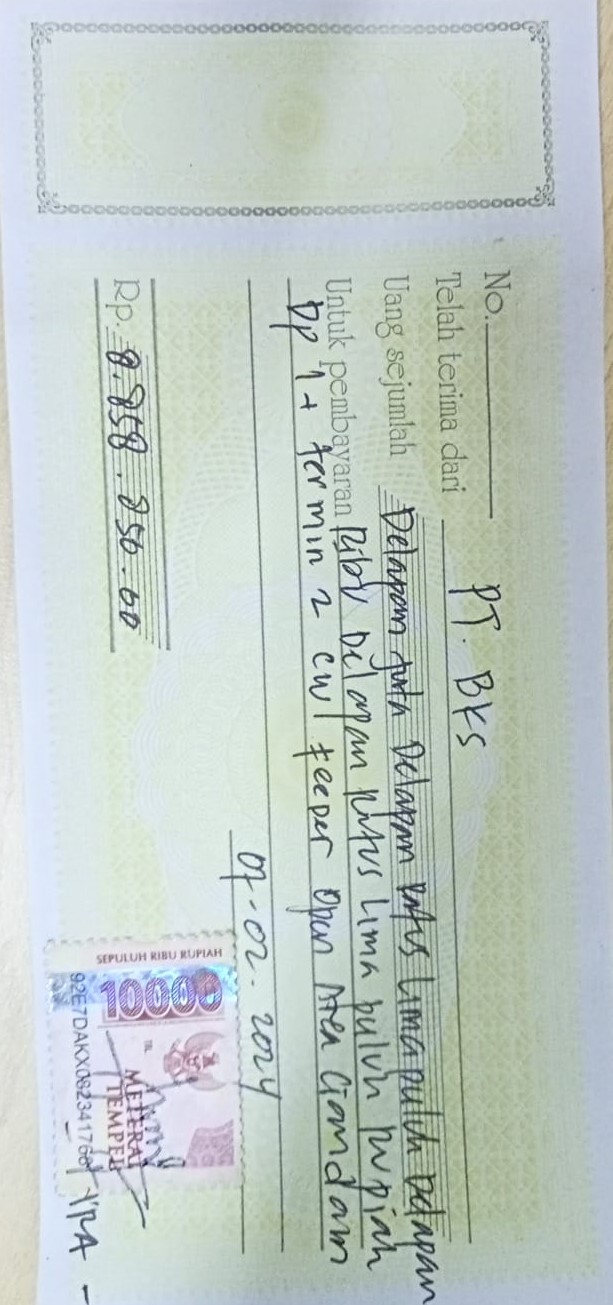 No.
Telah terima dari PT. BKS
Uang sejumlah Delapan juta Delapan Ratus Lima puluh Delapan
Untuk pembayaran Ribu Delapan Ratus Lima puluh Rupiah
Dp 1 + termin 2 cwl feeder Open Area Ciamdam
07-02-2024
Rp. 8.858.850.00
SEPULUH RIBU RUPIAH
10000
TGL
METERAI
TEMPEL
92E7DAKX082341768